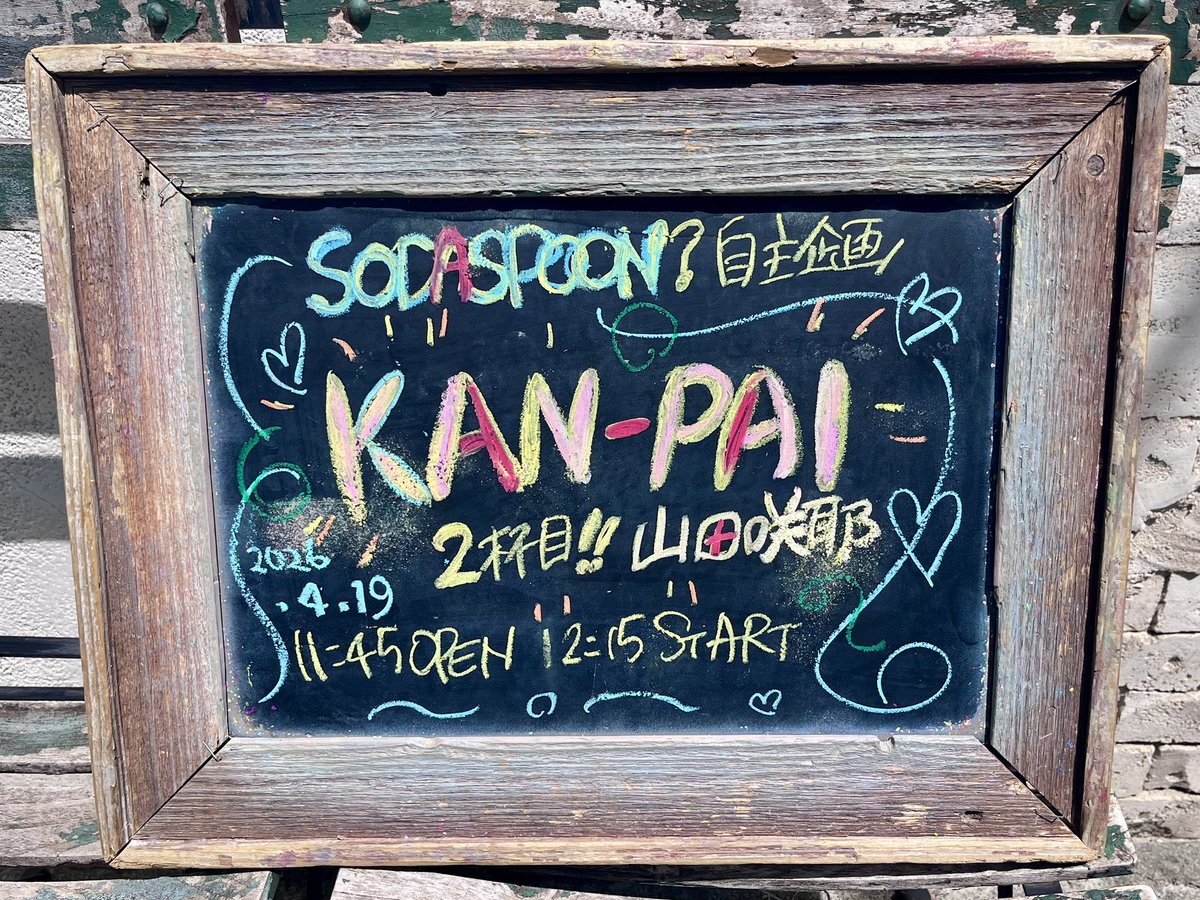 SODASPOON? 自主企画
KAN-PAI
2杯目!! 山田咲耶
2026
.4.19
11:45 OPEN 12:15 START